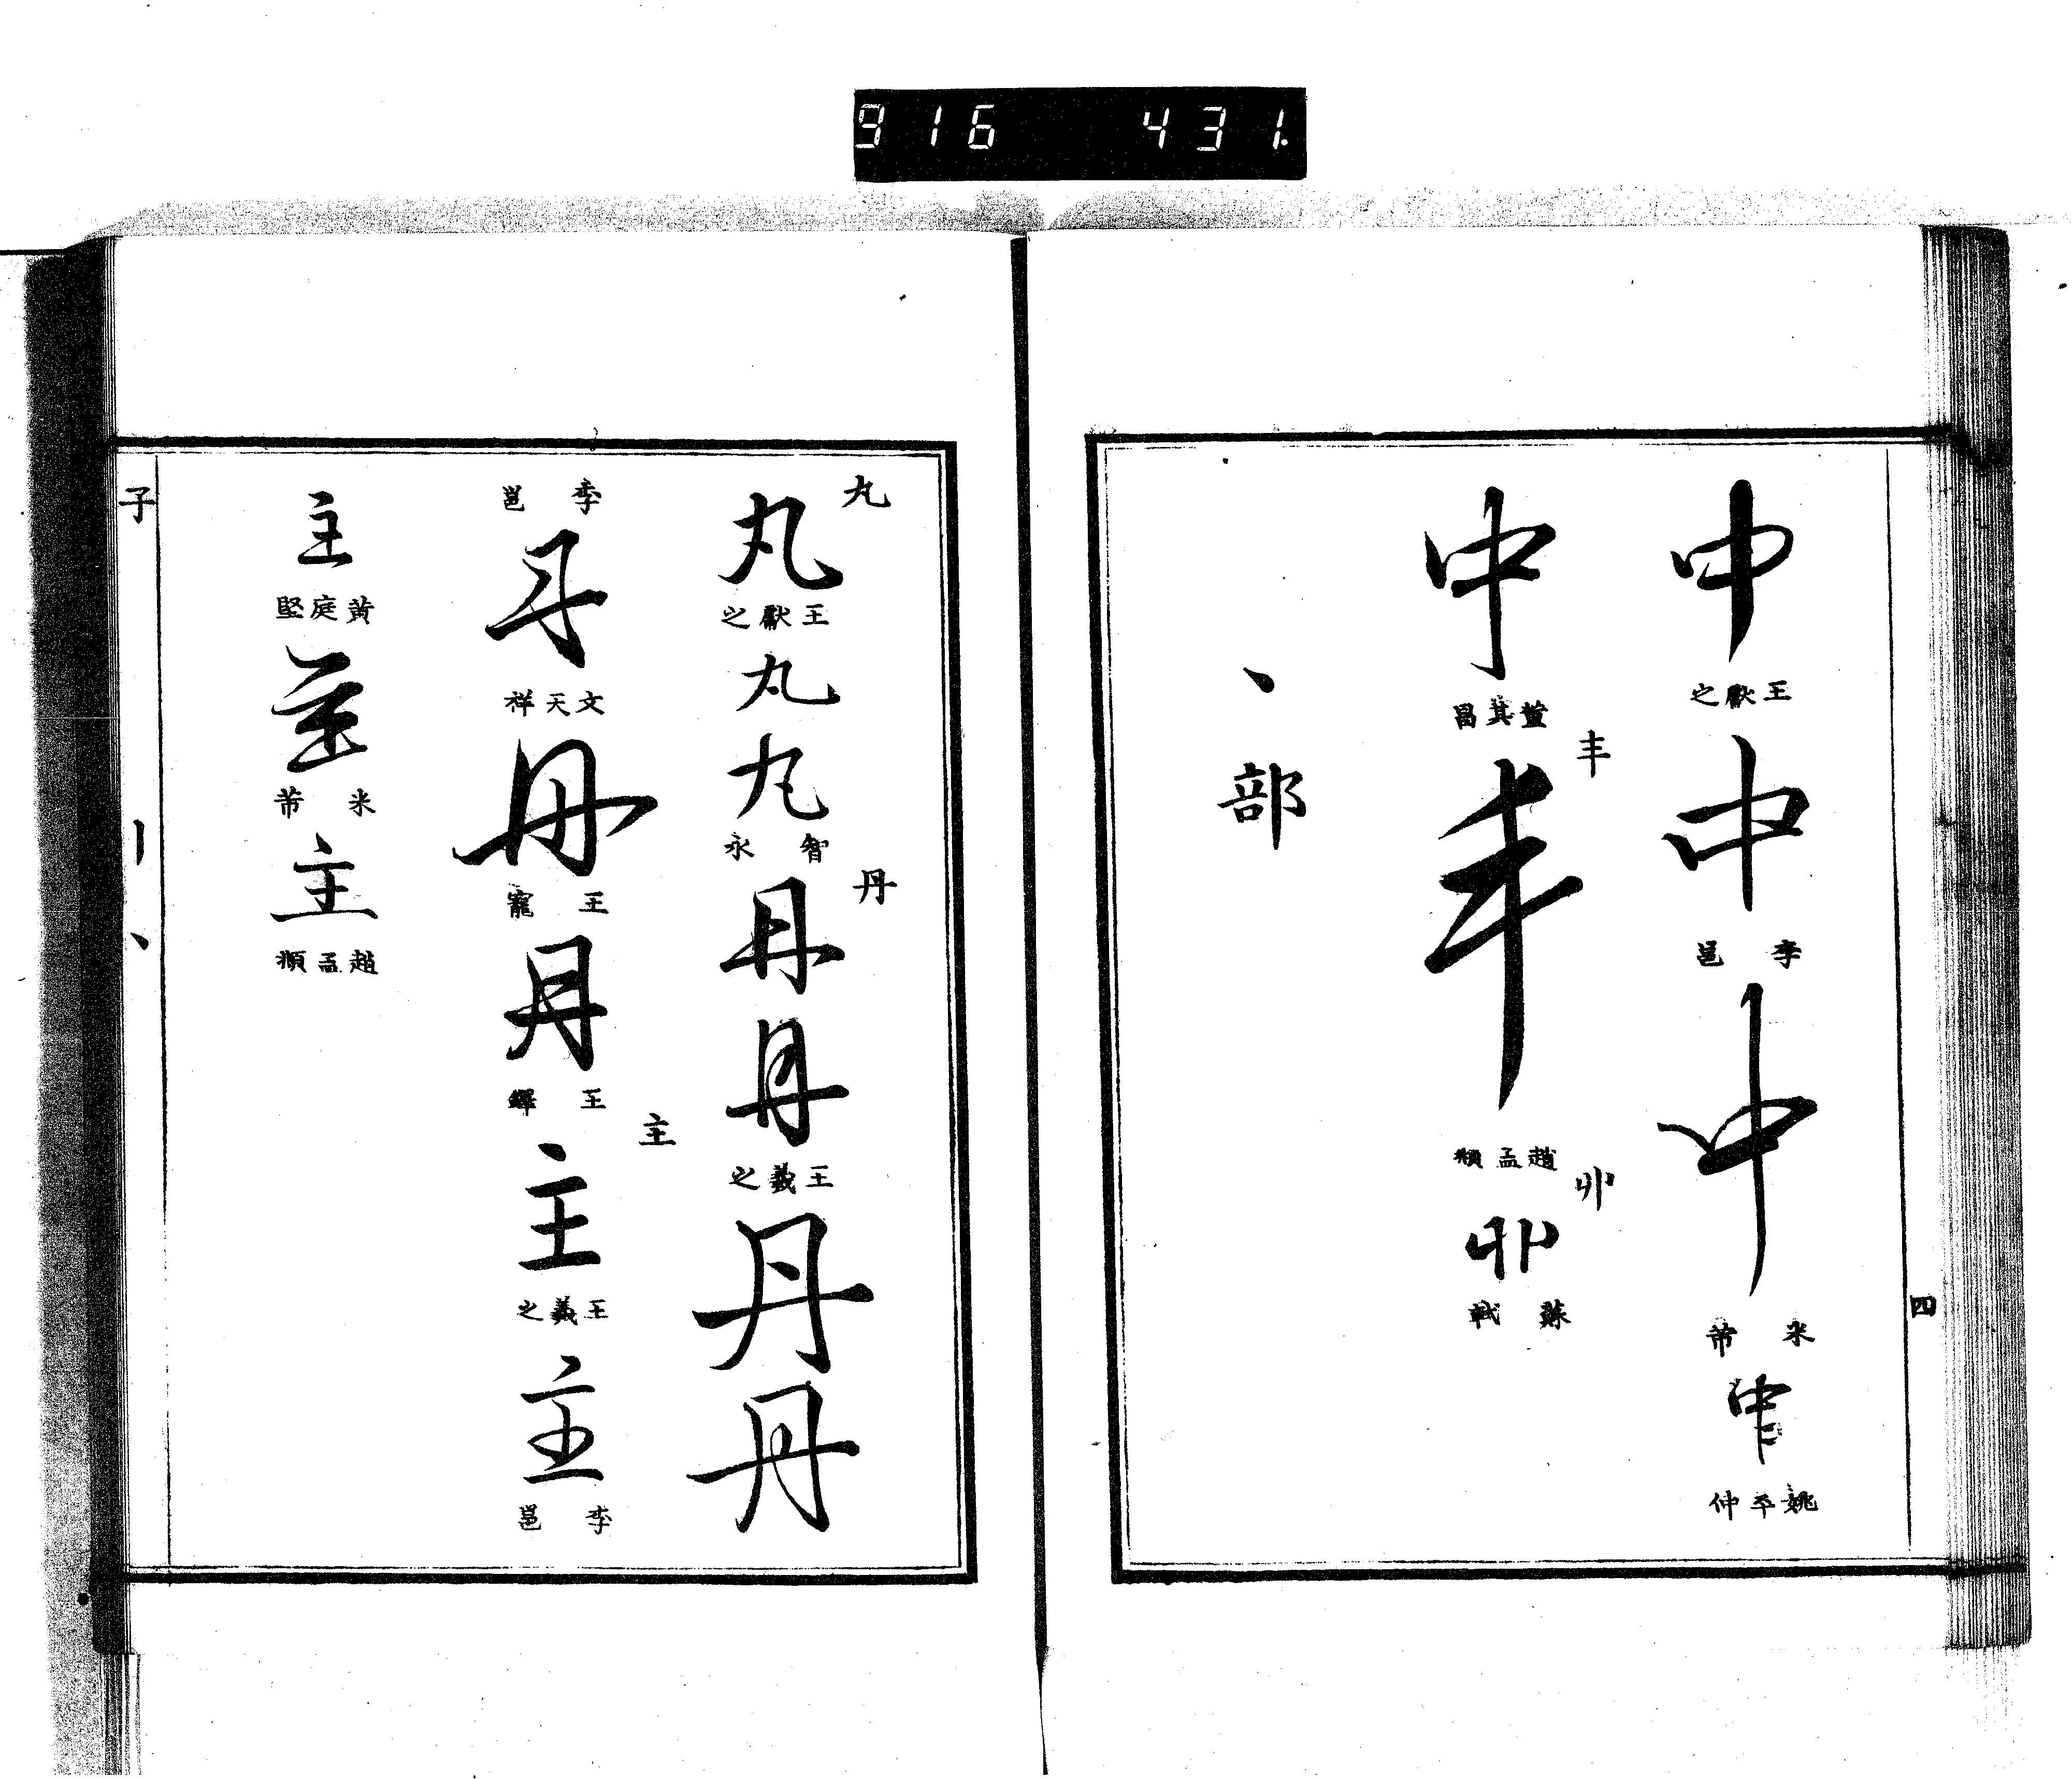 916 431.
中
王獻之
中
李邕
中
米芾
中
姚平仲
四
中
董其昌
丰
丰
趙孟頫
丱
丱
蘇軾
丶部
丸
丸
王獻之
丸
丸
智永
丹
丹
丹
王羲之
丹
丹
李邕
丹
文天祥
丹
王寵
丹
王鐸
主
主
王羲之
主
李邕
主
黃庭堅
主
米芾
主
趙孟頫
子 丨丶